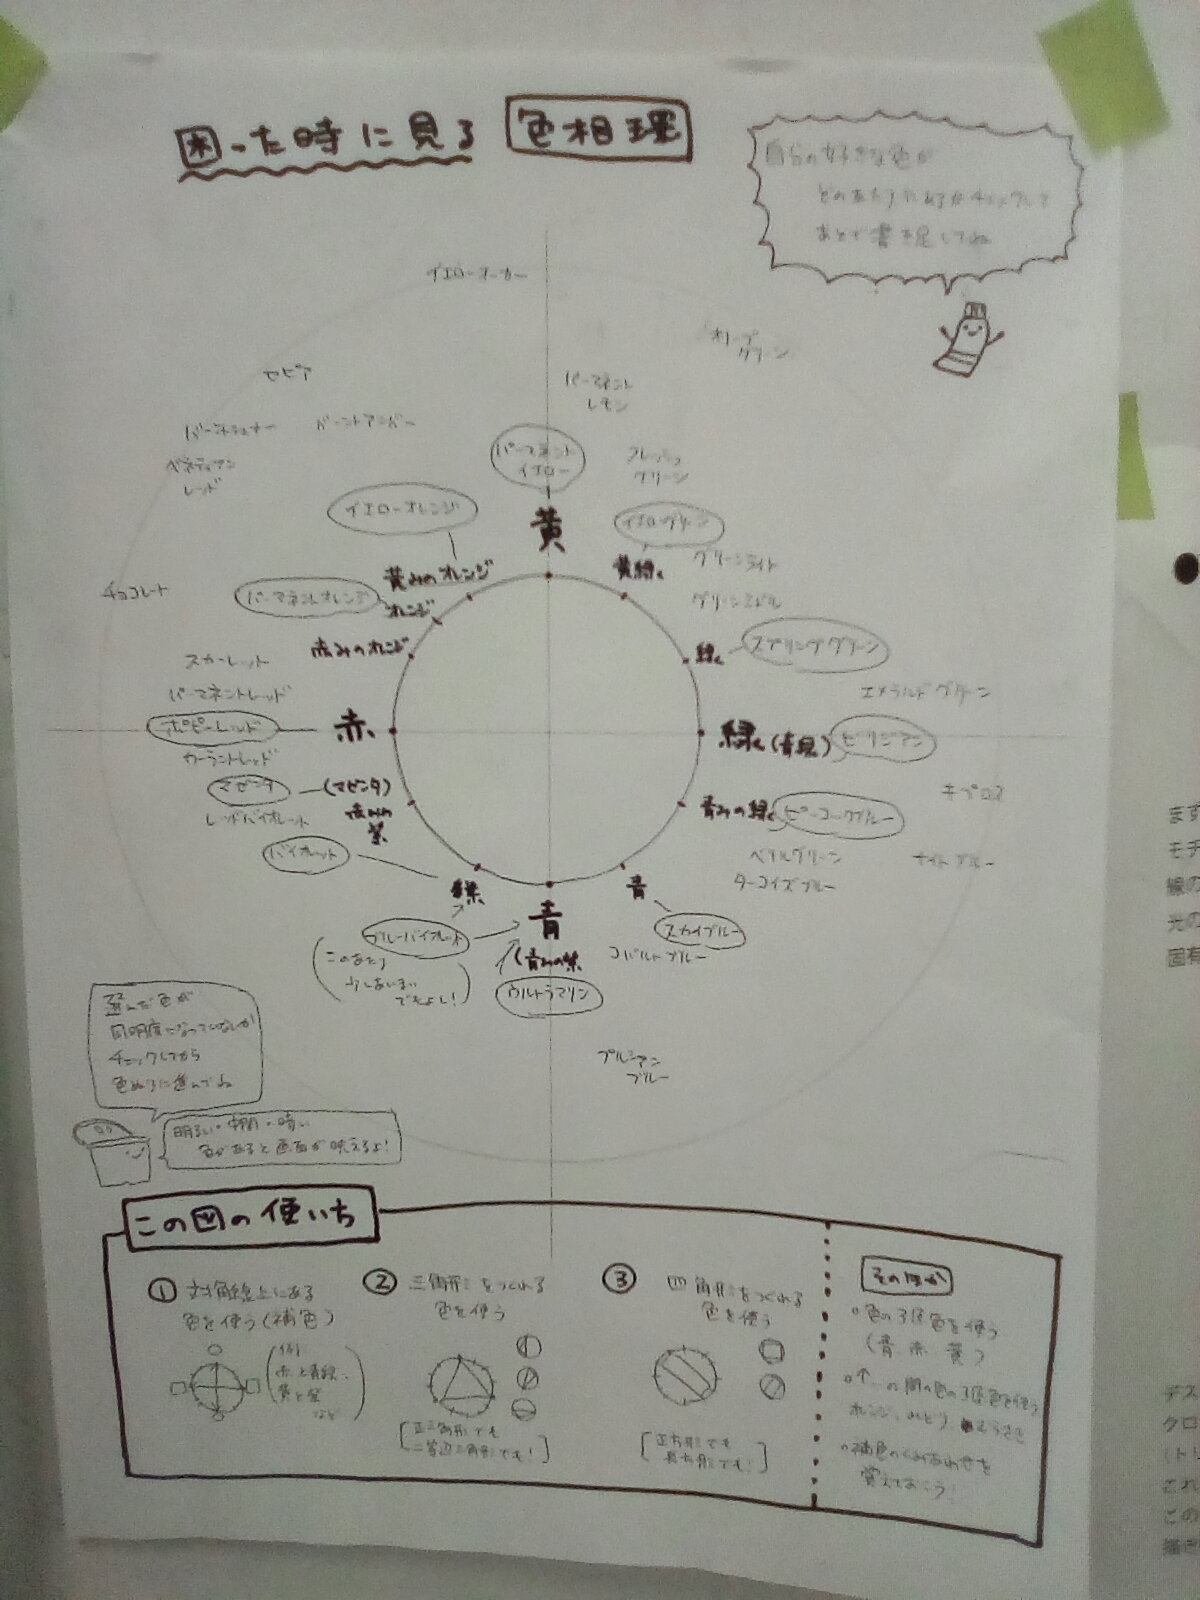 困った時に見る 色相理
自分の好きな色が
どのあたりにあるかチェックして
あとで書き足してね
イエローオーカー
オリーブ
グリーン
セピア
パーマネント
レモン
バーントアンバー
パーマネント
イエロー
フレッシュ
グリーン
レッド
イエローオレンジ
黄
イエローグリーン
黄みのオレンジ
黄緑
グリーンライト
チョコレート
パーマネントオレンジ
オレンジ
グリーンミドル
赤みのオレンジ
緑
スプリンググリーン
スカーレット
パーマネントレッド
エメラルドグリーン
ポピーレッド
赤
緑(青緑)
ビリジアン
カーラントレッド
マゼンタ
(マゼンタ)
赤みの
紫
キプロス
青みの緑
ピーコックブルー
レッドバイオレット
バイオレット
ベリルグリーン
ナイトブルー
ターコイズブルー
紫
青
青
ブルーバイオレット
スカイブルー
(青みの紫
コバルトブルー
(このあたり
少しあいまい
でもよし!)
ウルトラマリン
プルシアン
ブルー
選んだ色が
同明度になっていないか
チェックしてから
色ぬりに進んでね
明るい・中間・暗い
色があると画面が映えるよ!
この図の使いち
① 対角線上にある
色を使う(補色)
(例)
赤と青緑、
黄と紫
など
② 三角形をつくれる
色を使う
[正三角形でも
二等辺三角形でも!]
③ 四角形をつくれる
色を使う
[正方形でも
長方形でも!]
そのほか
○色の3原色を使う
(青 赤 黄)
○↑の間の色の3原色を使う
オレンジ、みどり、むらさき
○補色のくみあわせを
覚えておこう!
ます
モチ
線の
光の
固有
デス
タロ
(トレ
これ
この
描き